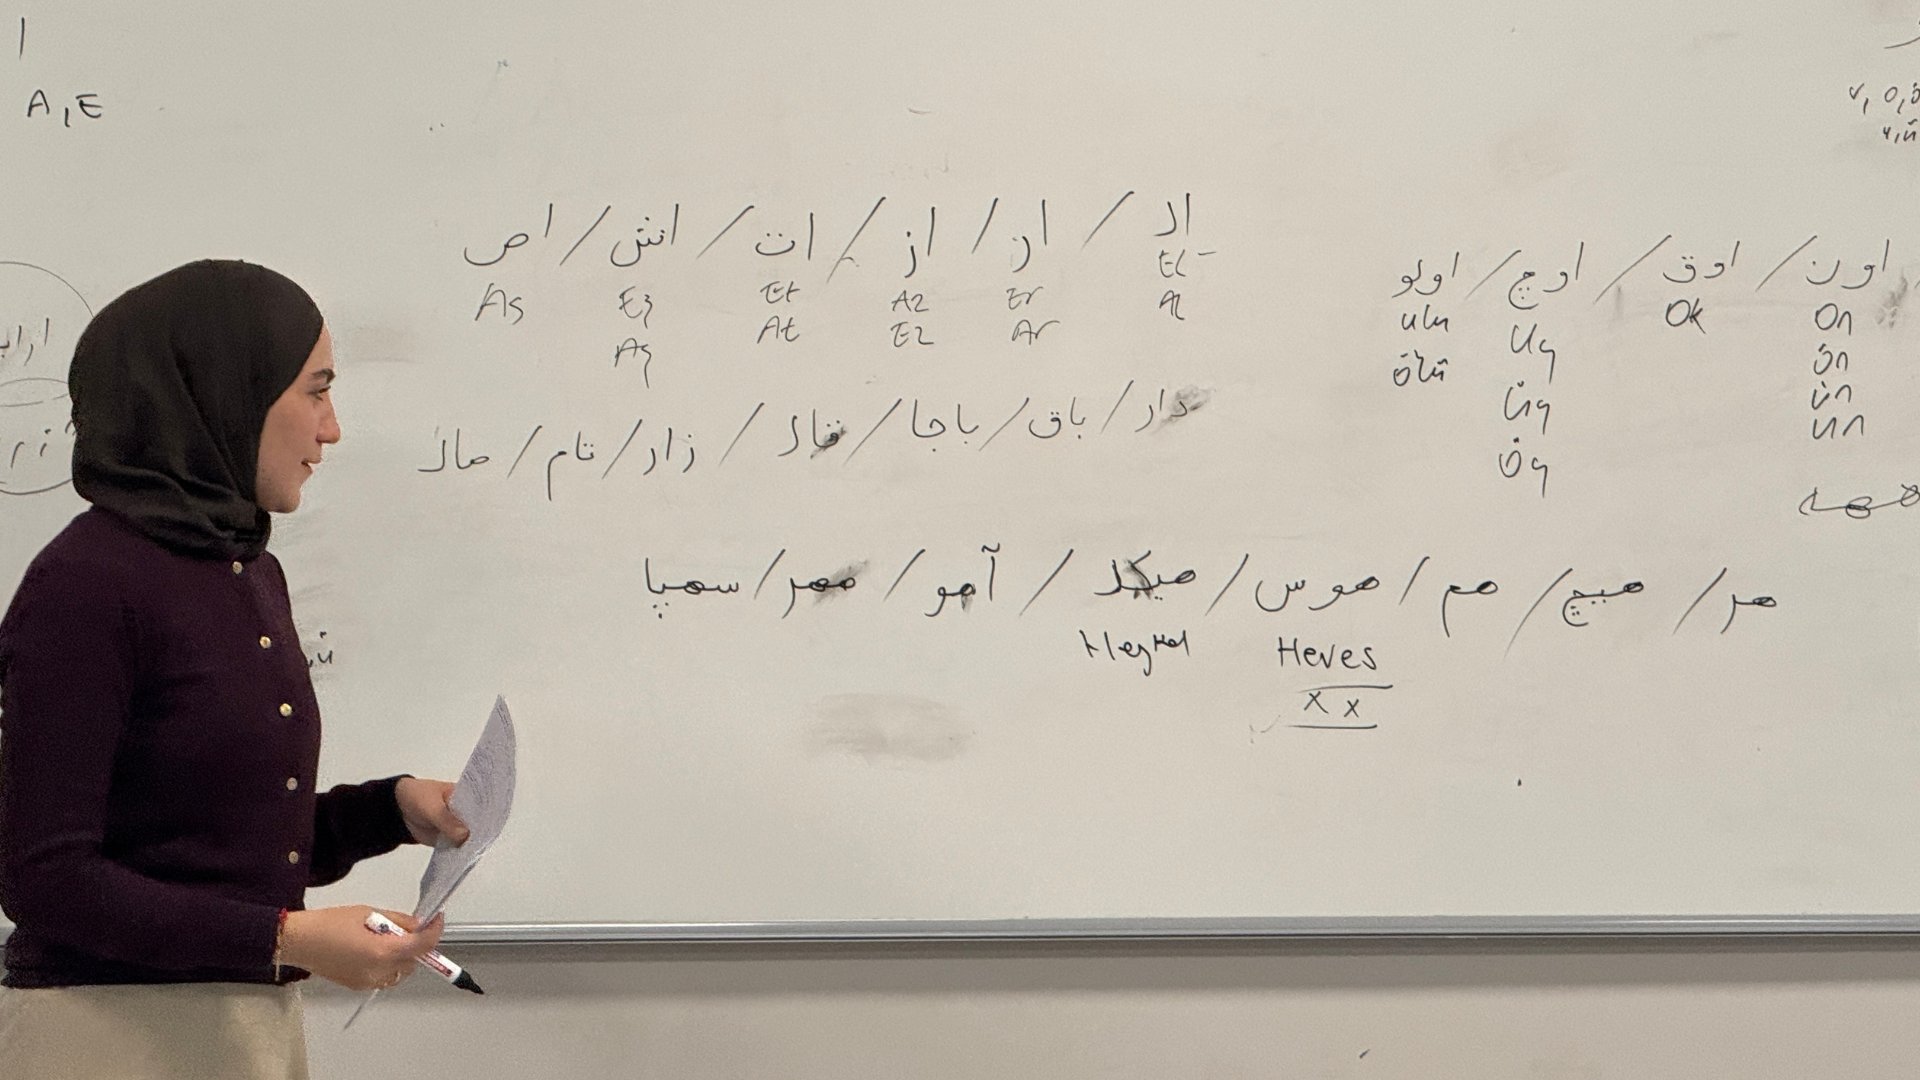 ا
A, E
ال / ار / از / ات / اش / اص
El Er Az Et Eş As
Al Ar Ez At Aş
اون / اوق / اوچ / اولو
On Ok Uç ulu
ön Üç ölü
ün Öç
un
دار / باق / باجا / قال / زار / تام / صال
هر / هیچ / هم / هوس / هیكل / آهو / مهر / سهپا
Heykel Heves
x x